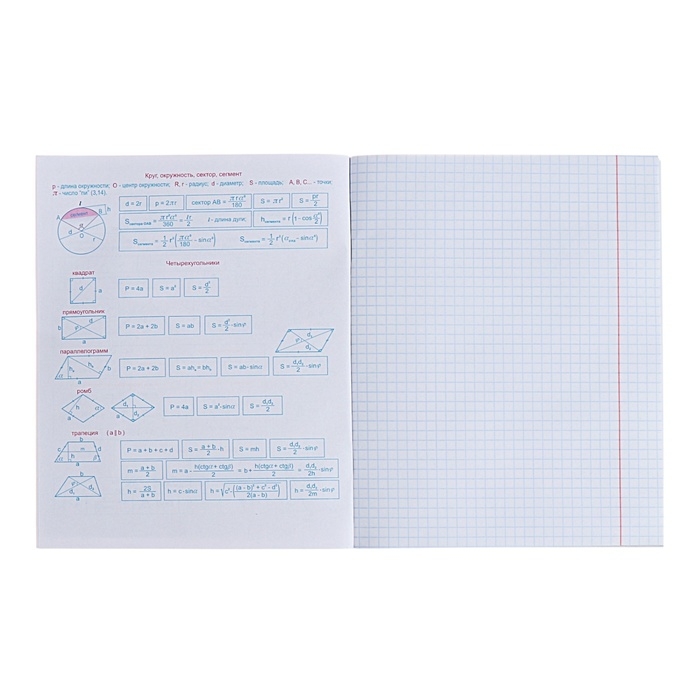 Круг, окружность, сектор, сегмент
p - длина окружности; O - центр окружности; R, r - радиус; d - диаметр; S - площадь; A, B, C... - точки;
π - число "пи" (3,14).
d = 2r  p = 2πr  сектор AB = πrα°/180  S = πr²  S = pr/2
S сектора OAB = πr²α°/360 = lr/2  l - длина дуги;
Четырехугольники
квадрат
P = 4a  S = a²  S = d²/2
прямоугольник
P = 2a + 2b  S = ab  S = d²/2 ·sinφ
параллелограмм
P = 2a + 2b  S = ahₐ = bh_b  S = ab·sinα  S = d₁d₂/2 ·sinφ
ромб
P = 4a  S = a²·sinα  S = d₁d₂/2
трапеция (a∥b)
P = a + b + c + d  S = (a + b)/2 ·h  S = mh  S = d₁d₂/2 ·sinφ
m = (a + b)/2  m = a - h(ctgα + ctgβ)/2 = b + h(ctgα + ctgβ)/2 = d₁d₂/2h ·sinφ
h = 2S/(a + b)  h = c·sinα  h = √(c² - ((a - b)² + c² - d²)/2(a - b))  h = d₁d₂/2m ·sinφ